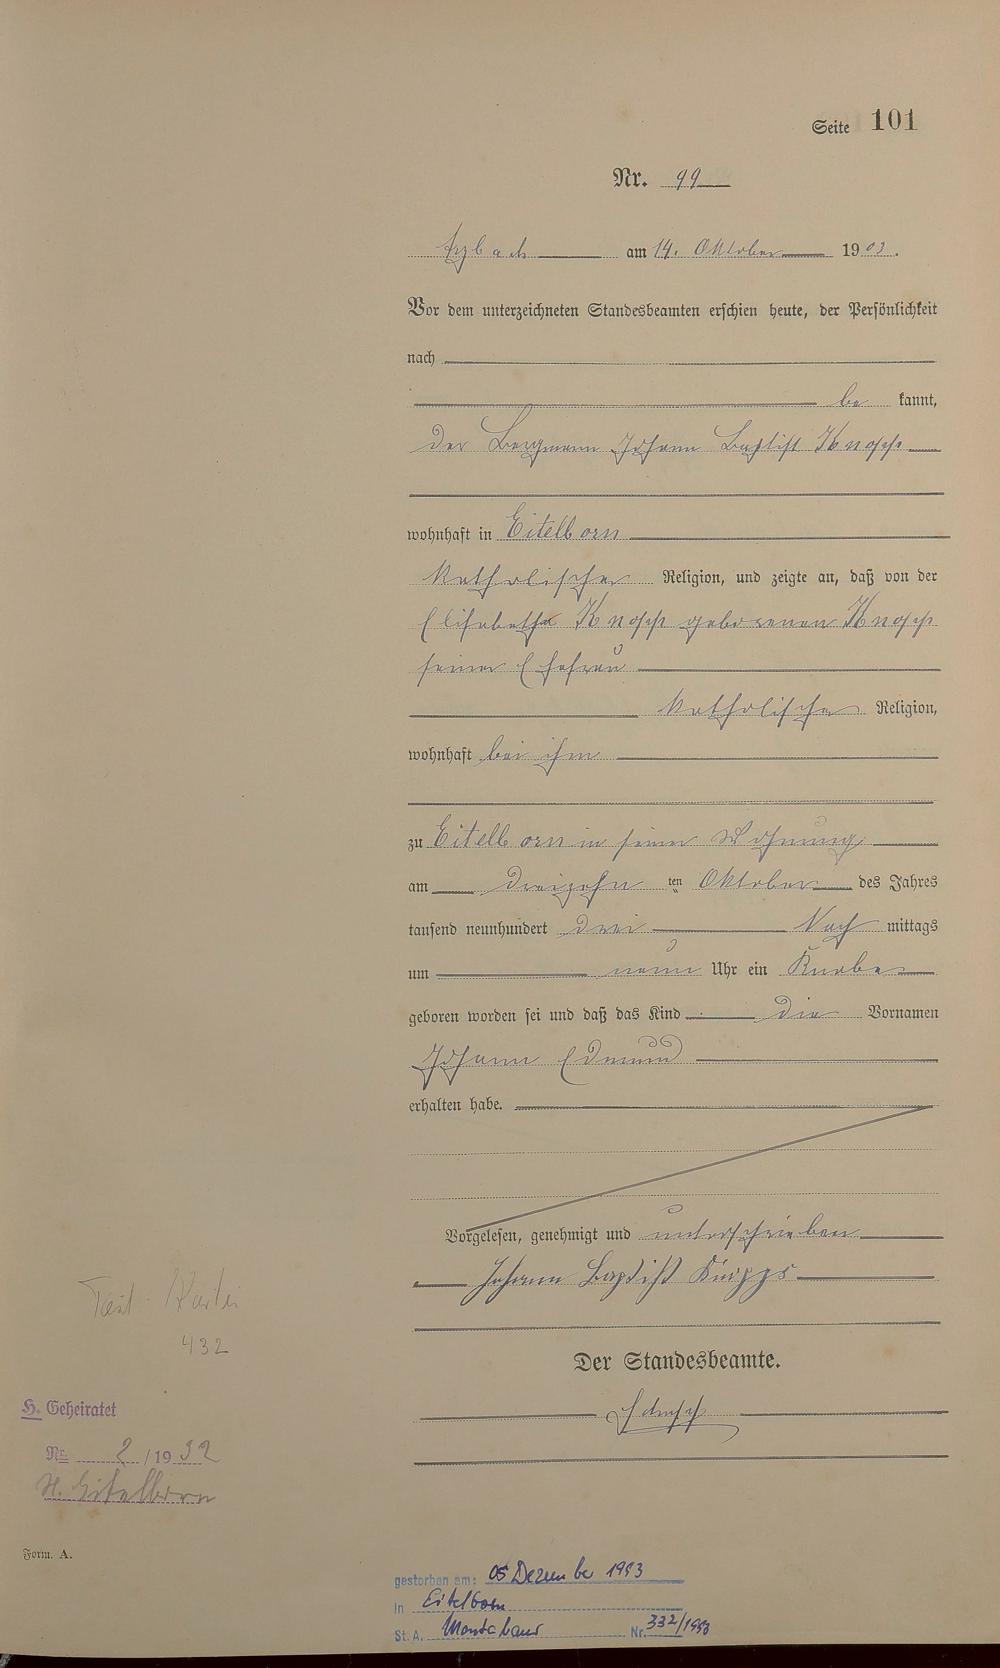 Seite 101
Nr. 99
Arzbach am 14. Oktober 1903.
Vor dem unterzeichneten Standesbeamten erschien heute, der Persönlichkeit
nach
be kannt,
der Bergmann Johann Baptist Knopp
wohnhaft in Eitelborn
katholischer Religion, und zeigte an, daß von der
Elisabetha Knopp geborenen Knopp
seiner Ehefrau
katholischer Religion,
wohnhaft bei ihm
zu Eitelborn in seiner Wohnung
am dreizehn ten Oktober des Jahres
tausend neunhundert drei Nach mittags
um neun Uhr ein Knabe
geboren worden sei und daß das Kind die Vornamen
Johann Edmund
erhalten habe.
Vorgelesen, genehmigt und unterschrieben
Johann Baptist
432
Der Standesbeamte.
H. Geheiratet
Nr. 2/1932
St. Eitelborn
Form. A.
gestorben am: 05 Dezember 1993
in Eitelborn
St. A. Montabaur Nr. 332/1993